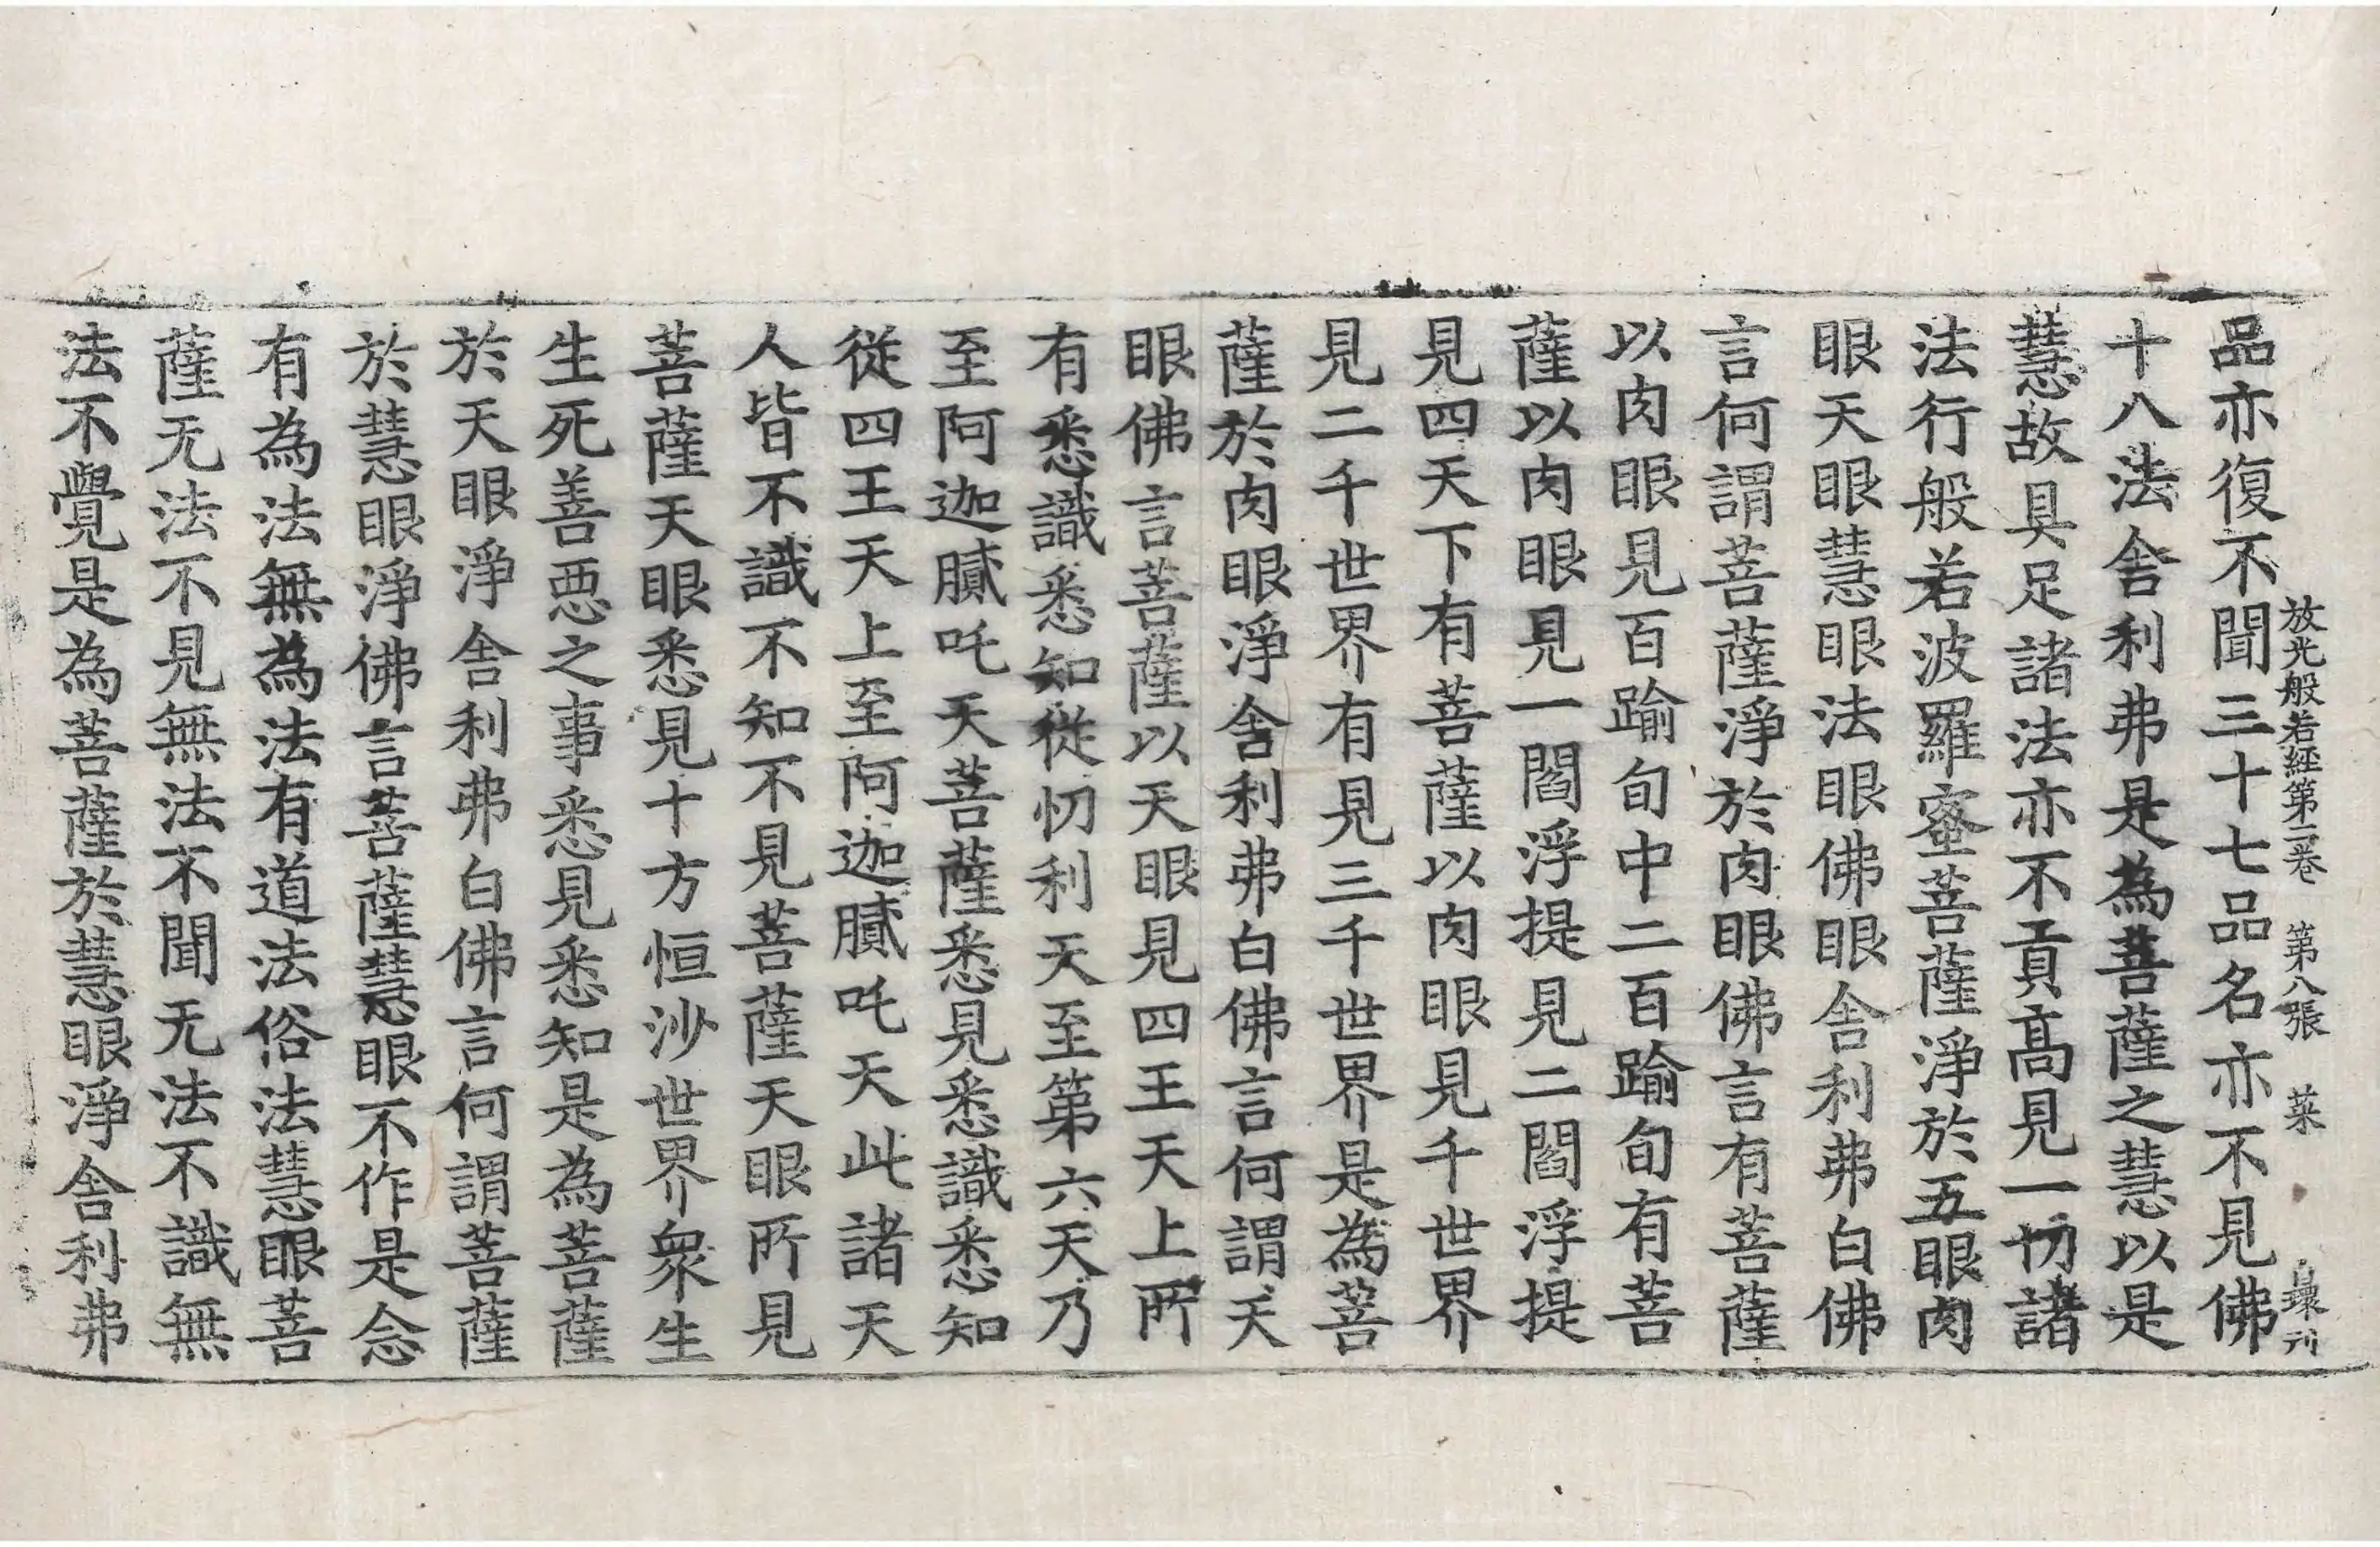 放光般若經第二卷 第八張 菜 
品亦復不聞三十七品名亦不見佛
十八法舍利弗是為菩薩之慧以是
慧故具足諸法亦不貢高見一切諸
法行般若波羅蜜菩薩淨於五眼肉
眼天眼慧眼法眼佛眼舍利弗白佛
言何謂菩薩淨於肉眼佛言有菩薩
以肉眼見百踰旬中二百踰旬有菩
薩以肉眼見一閻浮提見二閻浮提
見四天下有菩薩以肉眼見千世界
見二千世界有見三千世界是為菩
薩於肉眼淨舍利弗白佛言何謂天
眼佛言菩薩以天眼見四王天上所
有悉識悉知從忉利天至第六天乃
至阿迦膩吒天菩薩悉見悉識悉知
從四王天上至阿迦膩吒天此諸天
人皆不識不知不見菩薩天眼所見
菩薩天眼悉見十方恒沙世界眾生
生死善惡之事悉見悉知是為菩薩
於天眼淨舍利弗白佛言何謂菩薩
於慧眼淨佛言菩薩慧眼不作是念
有為法無為法有道法俗法慧眼菩
薩无法不見無法不聞无法不識無
法不覺是為菩薩於慧眼淨舍利弗